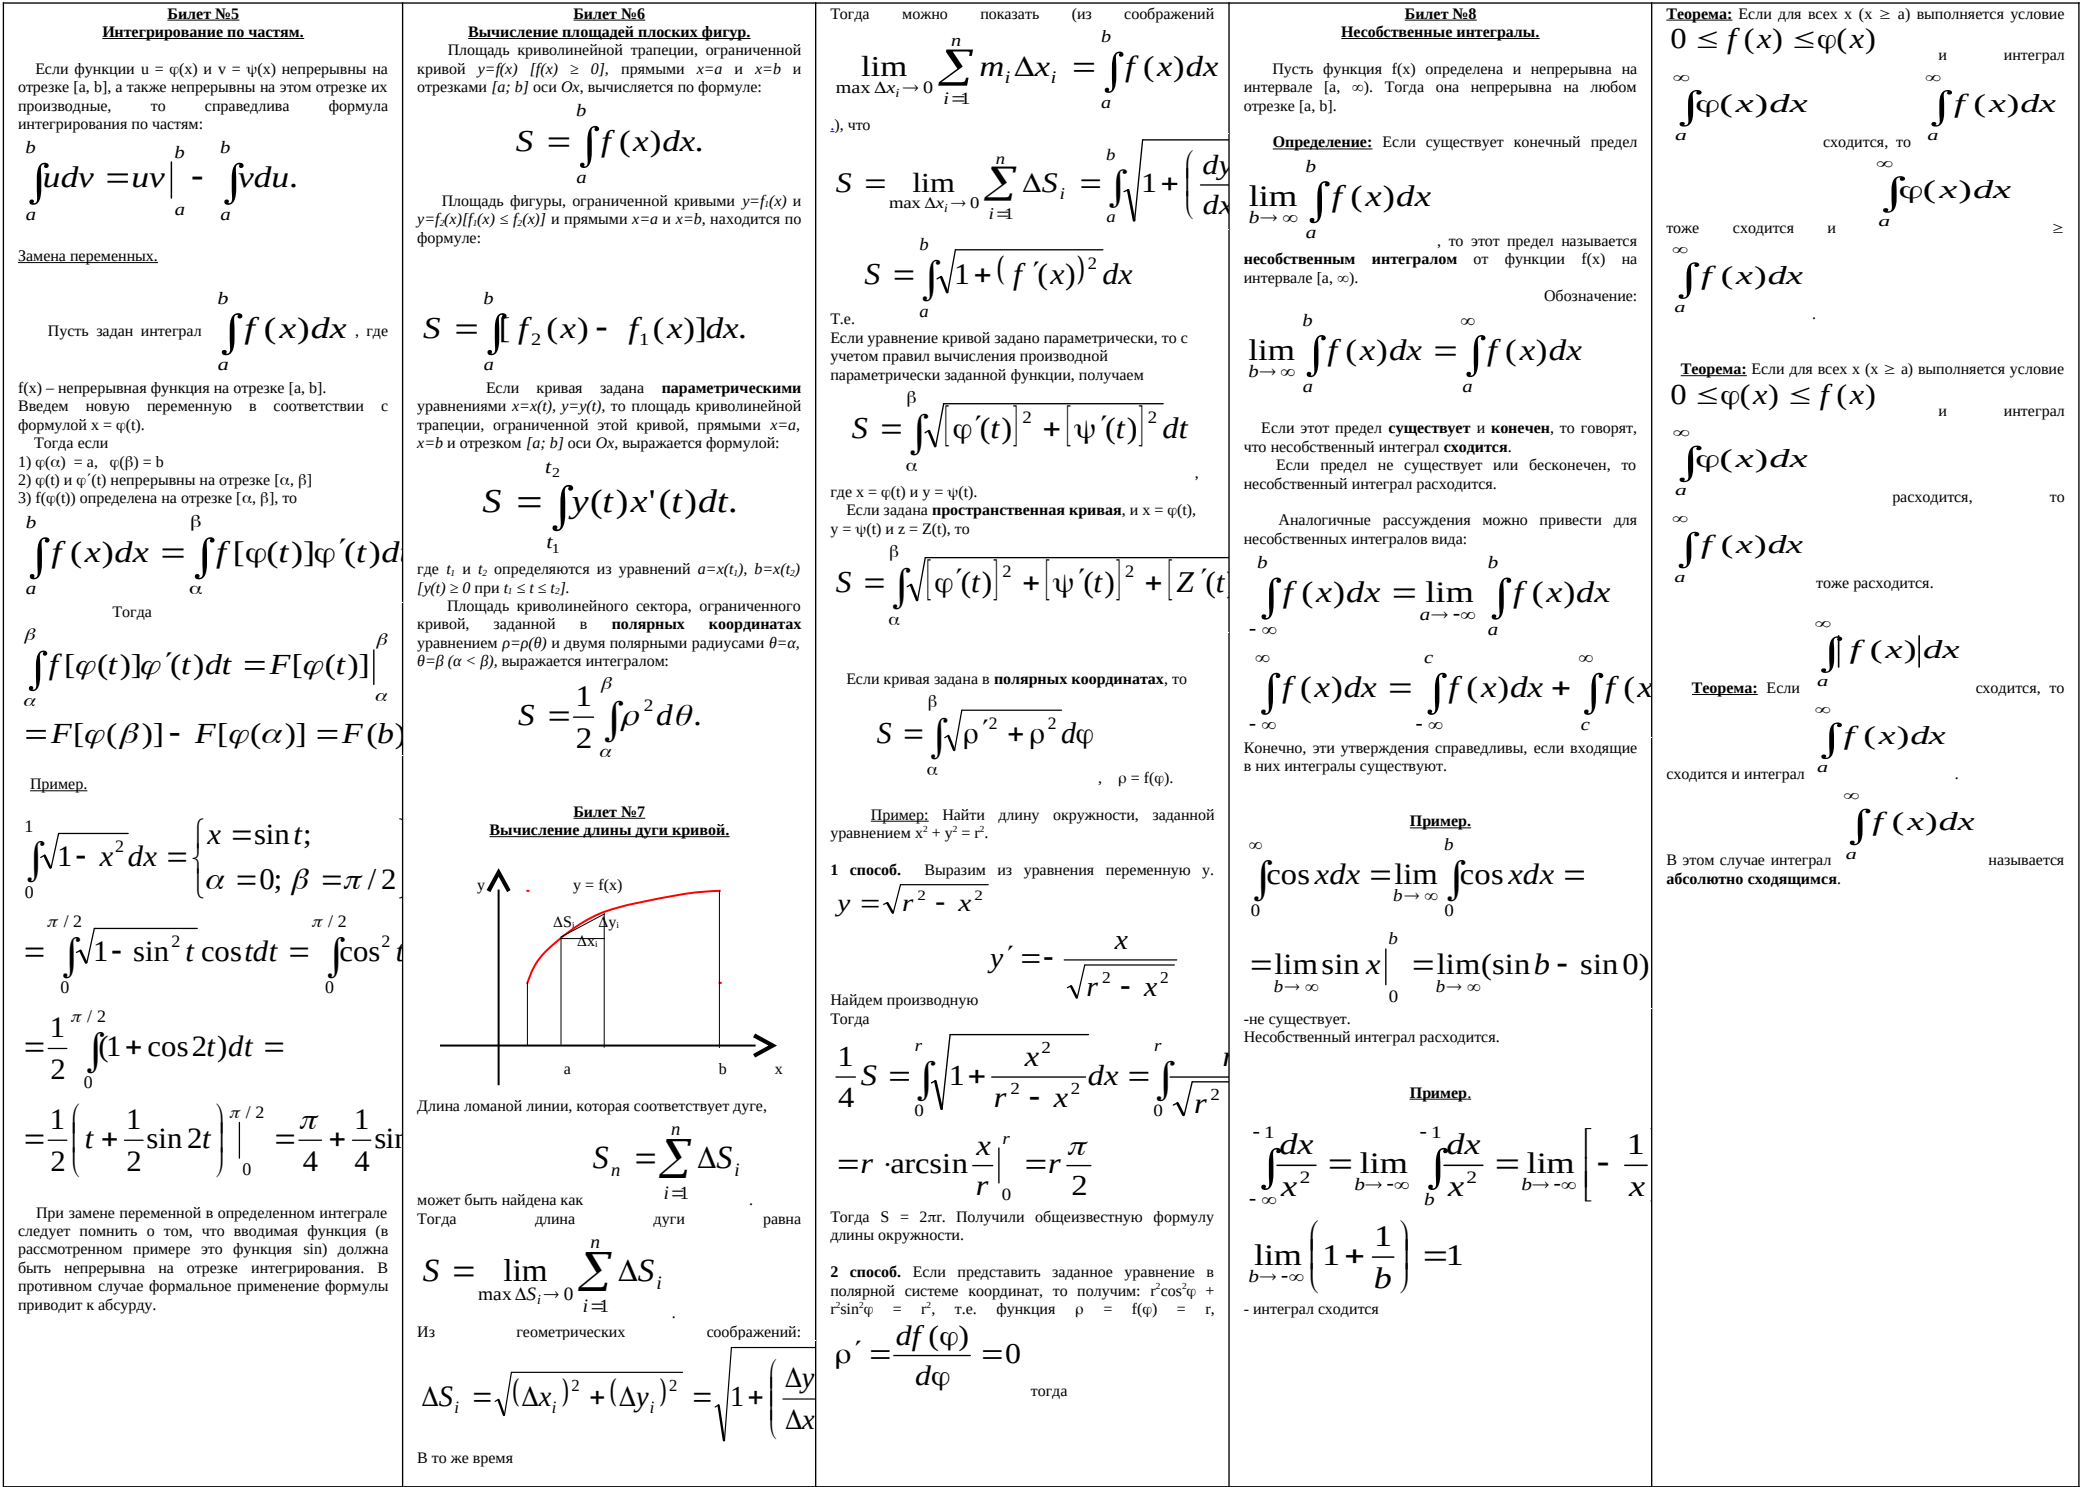 Билет №5
Интегрирование по частям.
Если функции u = φ(x) и v = ψ(x) непрерывны на
отрезке [a, b], а также непрерывны на этом отрезке их
производные, то справедлива формула
интегрирования по частям:
∫_a^b udv = uv|_a^b - ∫_a^b vdu.
Замена переменных.
Пусть задан интеграл ∫_a^b f(x)dx , где
f(x) – непрерывная функция на отрезке [a, b].
Введем новую переменную в соответствии с
формулой x = φ(t).
Тогда если
1) φ(α) = a, φ(β) = b
2) φ(t) и φ′(t) непрерывны на отрезке [α, β]
3) f(φ(t)) определена на отрезке [α, β], то
∫_a^b f(x)dx = ∫_α^β f[φ(t)]φ′(t)dt
Тогда
∫_α^β f[φ(t)]φ′(t)dt = F[φ(t)]|_α^β
= F[φ(β)] - F[φ(α)] = F(b)
Пример.
∫_0^1 √(1 - x²)dx = {x = sin t; α = 0; β = π / 2}
= ∫_0^{π/2} √(1 - sin² t) cos tdt = ∫_0^{π/2} cos² t
= 1/2 ∫_0^{π/2} (1 + cos 2t)dt =
= 1/2 (t + 1/2 sin 2t)|_0^{π/2} = π/4 + 1/4 sin
При замене переменной в определенном интеграле
следует помнить о том, что вводимая функция (в
рассмотренном примере это функция sin) должна
быть непрерывна на отрезке интегрирования. В
противном случае формальное применение формулы
приводит к абсурду.
Билет №6
Вычисление площадей плоских фигур.
Площадь криволинейной трапеции, ограниченной
кривой y=f(x) [f(x) ≥ 0], прямыми x=a и x=b и
отрезками [a; b] оси Ox, вычисляется по формуле:
S = ∫_a^b f(x)dx.
Площадь фигуры, ограниченной кривыми y=f₁(x) и
y=f₂(x)[f₁(x) ≤ f₂(x)] и прямыми x=a и x=b, находится по
формуле:
S = ∫_a^b [f₂(x) - f₁(x)]dx.
Если кривая задана параметрическими
уравнениями x=x(t), y=y(t), то площадь криволинейной
трапеции, ограниченной этой кривой, прямыми x=a,
x=b и отрезком [a; b] оси Ox, выражается формулой:
S = ∫_{t₁}^{t₂} y(t)x'(t)dt.
где t₁ и t₂ определяются из уравнений a=x(t₁), b=x(t₂)
[y(t) ≥ 0 при t₁ ≤ t ≤ t₂].
Площадь криволинейного сектора, ограниченного
кривой, заданной в полярных координатах
уравнением ρ=ρ(θ) и двумя полярными радиусами θ=α,
θ=β (α < β), выражается интегралом:
S = 1/2 ∫_α^β ρ² dθ.
Билет №7
Вычисление длины дуги кривой.
y y = f(x)
ΔSᵢ Δyᵢ
Δxᵢ
a b x
Длина ломаной линии, которая соответствует дуге,
может быть найдена как Sₙ = ∑_{i=1}^n ΔSᵢ .
Тогда длина дуги равна
S = lim_{max ΔSᵢ→0} ∑_{i=1}^n ΔSᵢ .
Из геометрических соображений:
ΔSᵢ = √((Δxᵢ)² + (Δyᵢ)²) = √(1 + (Δy/Δx
В то же время
Тогда можно показать (из соображений
lim_{max Δxᵢ→0} ∑_{i=1}^n mᵢΔxᵢ = ∫_a^b f(x)dx
.), что
S = lim_{max Δxᵢ→0} ∑_{i=1}^n ΔSᵢ = ∫_a^b √(1 + (dy/dx
Т.е. S = ∫_a^b √(1 + (f′(x))²) dx
Если уравнение кривой задано параметрически, то с
учетом правил вычисления производной
параметрически заданной функции, получаем
S = ∫_α^β √([φ′(t)]² + [ψ′(t)]²) dt ,
где x = φ(t) и y = ψ(t).
Если задана пространственная кривая, и x = φ(t),
y = ψ(t) и z = Z(t), то
S = ∫_α^β √([φ′(t)]² + [ψ′(t)]² + [Z′(t)
Если кривая задана в полярных координатах, то
S = ∫_α^β √(ρ′² + ρ²) dφ , ρ = f(φ).
Пример: Найти длину окружности, заданной
уравнением x² + y² = r².
1 способ. Выразим из уравнения переменную y.
y = √(r² - x²)
Найдем производную y′ = - x/√(r² - x²)
Тогда
1/4 S = ∫_0^r √(1 + x²/(r² - x²)) dx = ∫_0^r r/√(r²
= r · arcsin x/r |_0^r = r π/2
Тогда S = 2πr. Получили общеизвестную формулу
длины окружности.
2 способ. Если представить заданное уравнение в
полярной системе координат, то получим: r²cos²φ +
r²sin²φ = r², т.е. функция ρ = f(φ) = r,
ρ′ = df(φ)/dφ = 0 тогда
Билет №8
Несобственные интегралы.
Пусть функция f(x) определена и непрерывна на
интервале [a, ∞). Тогда она непрерывна на любом
отрезке [a, b].
Определение: Если существует конечный предел
lim_{b→∞} ∫_a^b f(x)dx , то этот предел называется
несобственным интегралом от функции f(x) на
интервале [a, ∞).
Обозначение:
lim_{b→∞} ∫_a^b f(x)dx = ∫_a^∞ f(x)dx
Если этот предел существует и конечен, то говорят,
что несобственный интеграл сходится.
Если предел не существует или бесконечен, то
несобственный интеграл расходится.
Аналогичные рассуждения можно привести для
несобственных интегралов вида:
∫_{-∞}^b f(x)dx = lim_{a→-∞} ∫_a^b f(x)dx
∫_{-∞}^∞ f(x)dx = ∫_{-∞}^c f(x)dx + ∫_c^∞ f(x
Конечно, эти утверждения справедливы, если входящие
в них интегралы существуют.
Пример.
∫_0^∞ cos xdx = lim_{b→∞} ∫_0^b cos xdx =
= lim_{b→∞} sin x|_0^b = lim_{b→∞} (sin b - sin 0)
-не существует.
Несобственный интеграл расходится.
Пример.
∫_{-∞}^{-1} dx/x² = lim_{b→-∞} ∫_b^{-1} dx/x² = lim_{b→-∞} [- 1/x
lim_{b→-∞} (1 + 1/b) = 1
- интеграл сходится
Теорема: Если для всех x (x ≥ a) выполняется условие
0 ≤ f(x) ≤ φ(x) и интеграл
∫_a^∞ φ(x)dx сходится, то ∫_a^∞ f(x)dx
тоже сходится и ∫_a^∞ φ(x)dx ≥
∫_a^∞ f(x)dx .
Теорема: Если для всех x (x ≥ a) выполняется условие
0 ≤ φ(x) ≤ f(x) и интеграл
∫_a^∞ φ(x)dx расходится, то
∫_a^∞ f(x)dx тоже расходится.
Теорема: Если ∫_a^∞ |f(x)|dx сходится, то
сходится и интеграл ∫_a^∞ f(x)dx .
В этом случае интеграл ∫_a^∞ f(x)dx называется
абсолютно сходящимся.